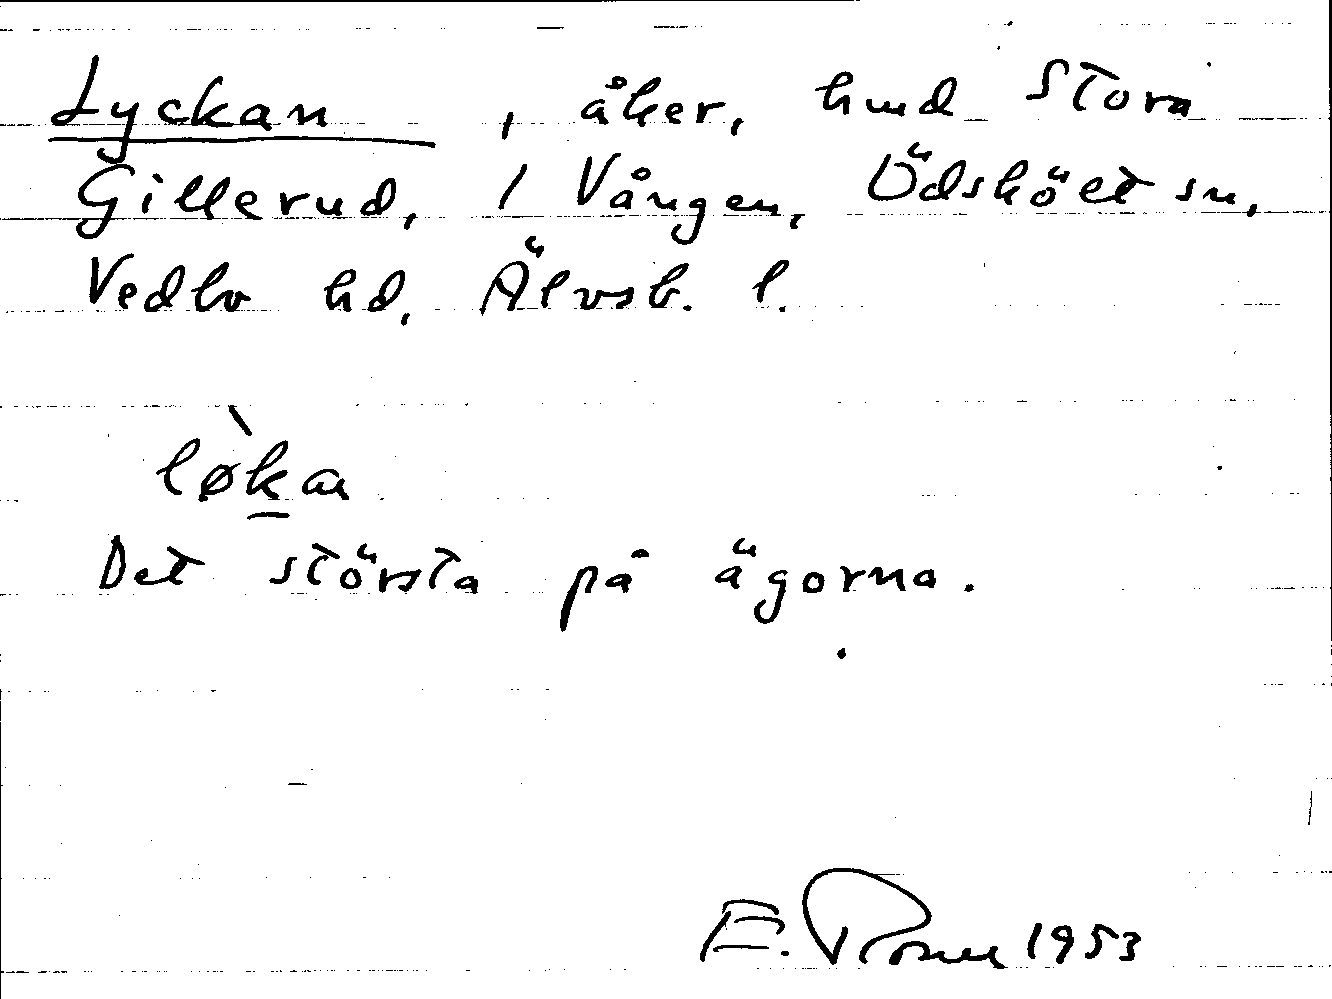 Lyckan, åker, hmd Stora
Gillerud, 1 Vången, Ödskölt sn,
Vedbo hd, Älvsb. l.
lø̀k̲a
Det största på ägorna.
E. 1953